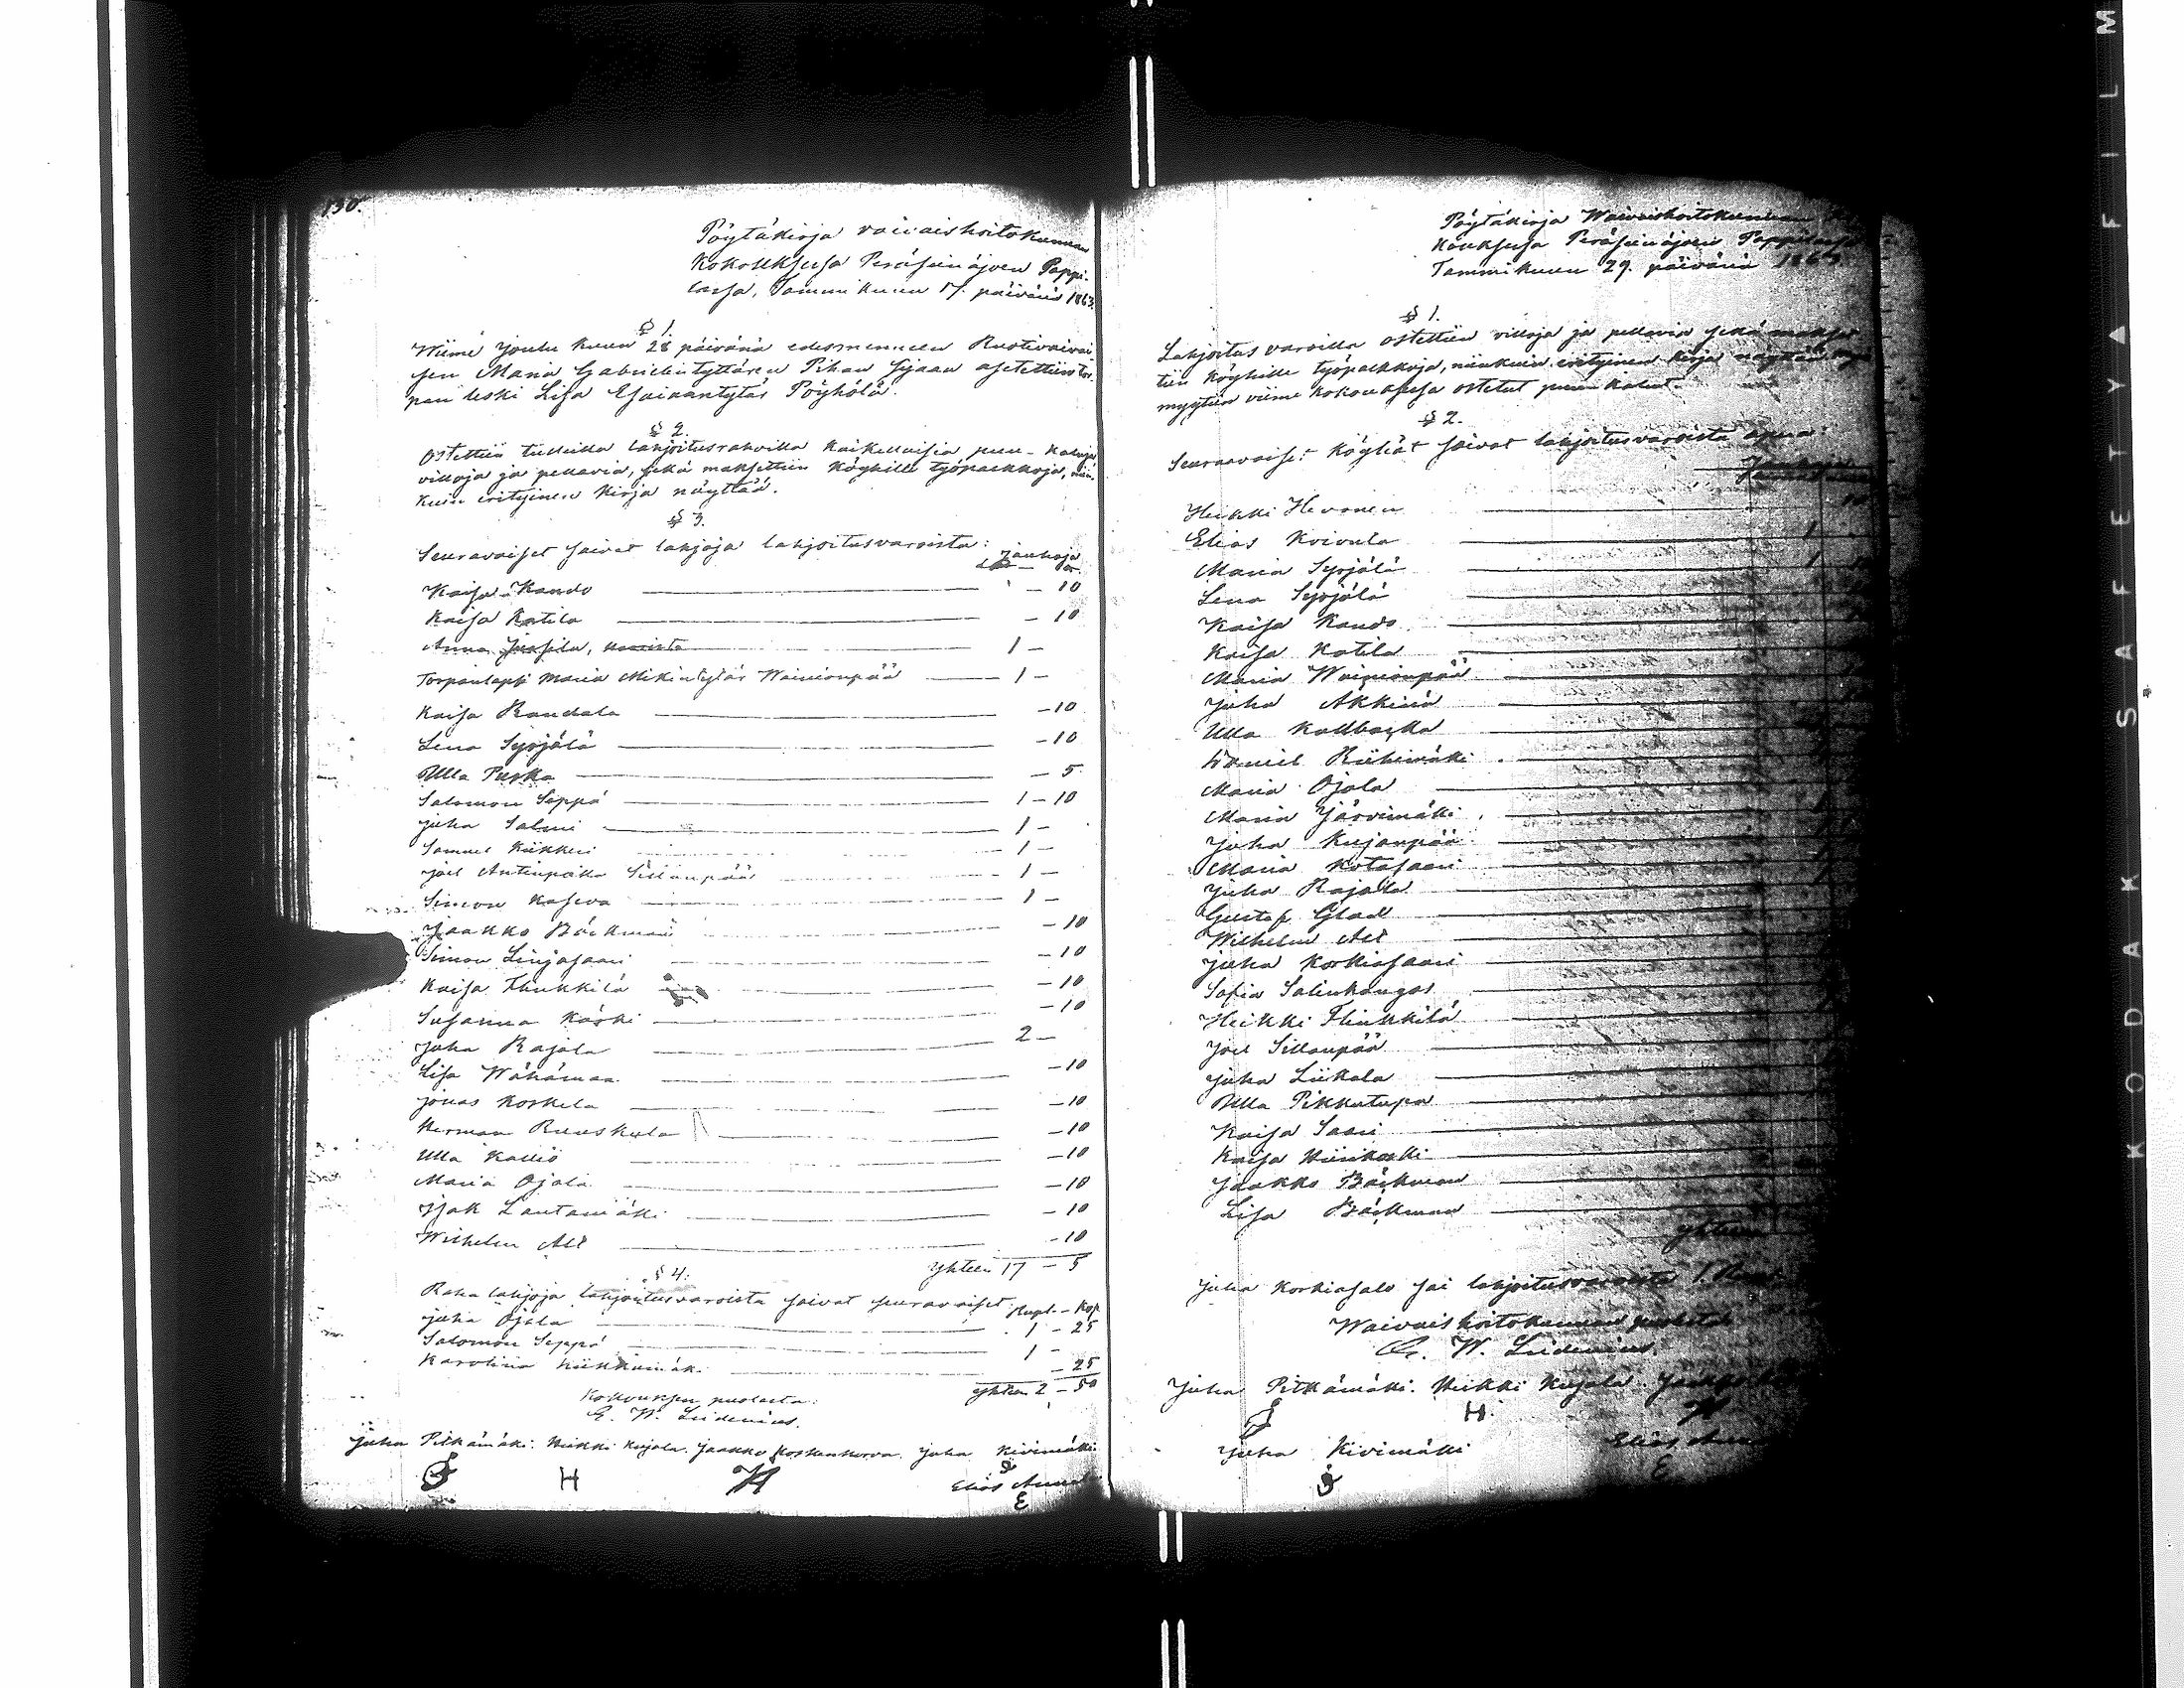 130.
Pöytäkirja vaivaishoitokunnan
Kokouksesa Peräseinäjoen Pappi-
lassa, Tammikuun 17. päivänä 1863.
§ 1.
Wiime Joulu kuun 28 päivänä edesmenneen Ruotivaivai-
sen Maria Gabrielintyttären Pihan sijaan asetettiin tor-
pan leski Lisa Esaiaantytär Pöyhölä.
§ 2.
Ostettiin tulleilla lahjoitusrahoilla kaikellaisia puu-kaluja
villoja ja pellavia, sekä maksettiin köyhille työpalkkoja, niin-
kuin erityinen kirja näyttää.
§ 3.
Seuravaiset saivat lahjoja lahjoitusvaroista:
Jauhoja
Kaisa Kando — 10
Kaisa Katila — 10
Anna Jussila, 1 —
Torpanlapsi Maria Mikintytär Wainionpää 1 —
Kaisa Randala — 10
Lena Syrjälä — 10
Ulla Puska — 5
Salomon Seppä 1 — 10
Juha Salmi 1 —
Samuel Kiikkeri 1 —
Joel Sillanpää 1 —
Simon Kaseva 1 —
Jaakko Bäckman — 10
Simon Linjasaari — 10
Kaisa Flinkkilä — 10
Susanna Käski — 10
Juha Rajala 2 —
Lisa Wähämaa — 10
Jonas Koskela — 10
Herman Ruuskula — 10
Ulla Kallio — 10
Maria Ojala — 10
Isak Lautamäki — 10
Wilhelm Alt — 10
Yhteen 17 — 5
§ 4.
Raha lahjoja lahjoitusvaroista saivat seuravaiset: Rupl. — Kop.
Juha Ojala 1 — 25
Salomon Seppä 1 —
Karolina Kiikkumäki — 25
Yhteen 2 — 50
Kokouksen puolesta:
G. W. Lidenius.
Juha Pitkämäki. Heikki Kujala. Jaakko Koskenkorva. Juha Kivimäki
H
Elias
E
Pöytäkirja Waivaishoitokunnan
kouksesa Peräseinäjoen Pappilassa
Tammikuun 29. päivänä 1863
§ 1.
Lahjoitus varoilla ostettiin villoja ja pellavia sekä makset-
tiin köyhille työpalkkoja, niinkuin erityinen kirja näyttää
myytiin viime kokouksesa ostetut puu kalut.
§ 2.
Seuraavaiset köyhät saivat lahjoitusvaroista apua:
Jauhoja
Heikki Hevonen
Elias Koivula 1
Maria Syrjälä 1
Lena Syrjälä
Kaisa Kando
Kaisa Katila
Maria Wainionpää
Juha Akkinä
Ulla Kallbacka
Daniel Riihimäki
Maria Ojala
Maria Järvimäki
Juha Kujanpää
Maria Kotasaari
Juha Rajala
Gustaf Glad
Wilhelm Alt
Juha Korkiasaari
Sofia Salinkangas
Heikki Flinkkilä
Joel Sillanpää
Juha Liikala
Ulla Pikkutupa
Kaisa Saari
Kaisa Hiirikoski
Jaakko Bäckman
Lisa Bäckman
Yhteen
Juha Korkiasalo sai lahjoitusvaroista 1.
Waivaishoitokunnan puolesta
G. W. Lidenius.
Juha Pitkämäki. Heikki Kujala. Jaakko
H.
Juha Kivimäki
Elias
E
KODAK SAFETY ▲ FILM